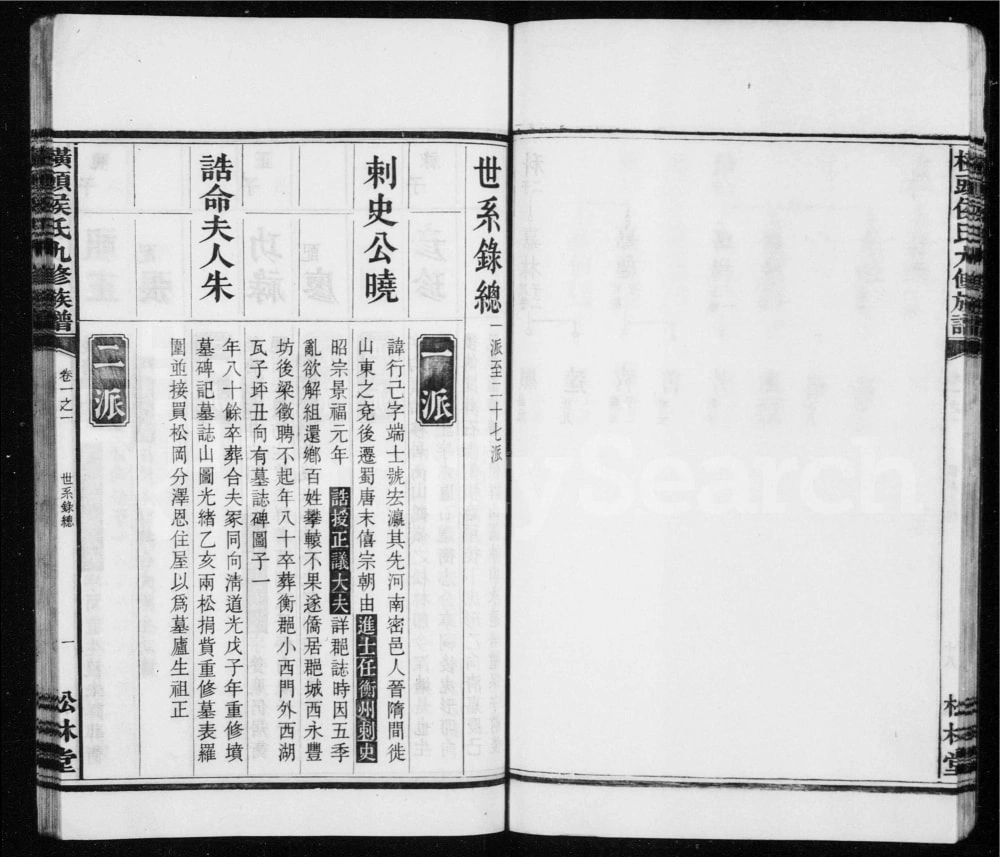 世系錄總
一派至二十七派
刺史公曉
一派
諱行己字端士號宏瀛其先河南密邑人晉隋間徙
山東之兗後遷蜀唐末僖宗朝由進士任衡州刺史
昭宗景福元年誥授正議大夫詳郡誌時因五季
亂欲解組還鄉百姓攀轅不果遂僑居郡城西永豐
坊後梁徵聘不起年八十卒葬衡郡小西門外西湖
瓦子坪丑向有墓誌碑圖子一
誥命夫人朱
年八十餘卒葬合夫冢同向清道光戊子年重修墳
墓碑記墓誌山圖光緒乙亥兩松捐貲重修墓表羅
圍並接買松岡分澤恩住屋以爲墓廬生祖正
二派
橫頭侯氏九修族譜
卷一之一
世系錄總
一
松林堂